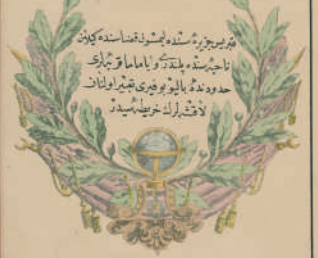 قبریس جزیره سنده لیمسون قضاسنده کیلان
ناحیه سنده پلندری و یاماما قریه لری
حدودنده بالیو بوفیری تعبیر اولنان
لرك خریطه سیدر